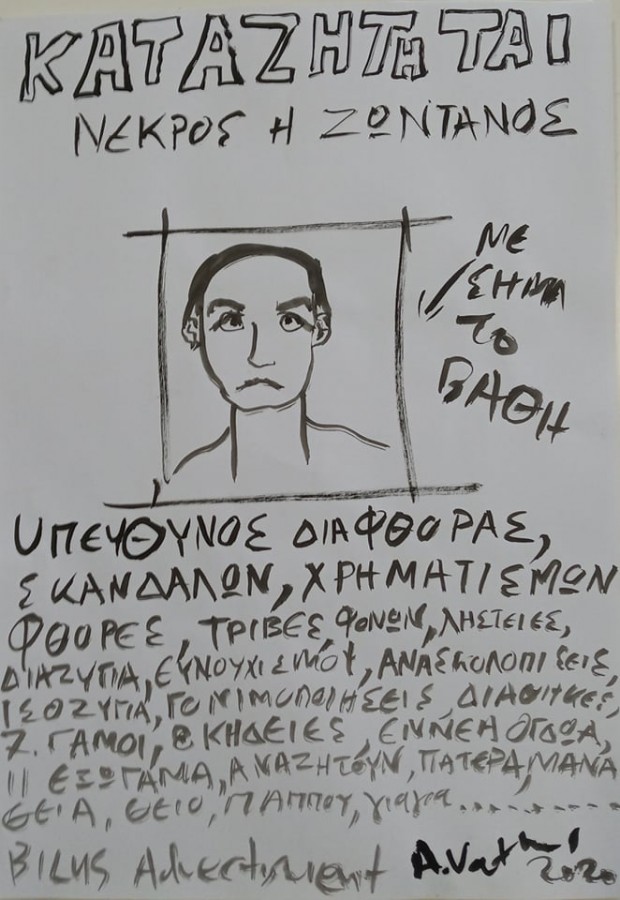 ΚΑΤΑΖΗΤΗΤΑΙ
ΝΕΚΡΟΣ Η ΖΩΝΤΑΝΟΣ
ΜΕ
ΣΗΜΑ
ΤΟ
ΒΑΘΗ
ΥΠΕΥΘΥΝΟΣ ΔΙΑΦΘΟΡΑΣ,
ΣΚΑΝΔΑΛΩΝ, ΧΡΗΜΑΤΙΣΜΩΝ
ΦΘΟΡΕΣ, ΤΡΙΒΕΣ, ΦΟΝΩΝ, ΛΗΣΤΕΙΕΣ,
ΔΙΑΖΥΓΙΑ, ΕΥΝΟΥΧΙΣΜΟΥ, ΑΝΑΣΚΟΛΟΠΙΣΕΙΣ,
ΙΣΟΖΥΓΙΑ, ΓΟΝΙΜΟΠΟΙΗΣΕΙΣ, ΔΙΑΘΗΚΕΣ,
7. ΓΑΜΟΙ, 8 ΚΗΔΕΙΕΣ, ΕΝΝΕΗ ΟΓΔΩΑ,
11 ΕΞΩΓΑΜΑ, ΑΝΑΖΗΤΟΥΝ, ΠΑΤΕΡΑ, ΜΑΝΑ
ΘΕΙΑ, ΘΕΙΟ, ΠΑΠΠΟΥ, γιαγια...........
BILLYS Advertisment A.Vathi
2020